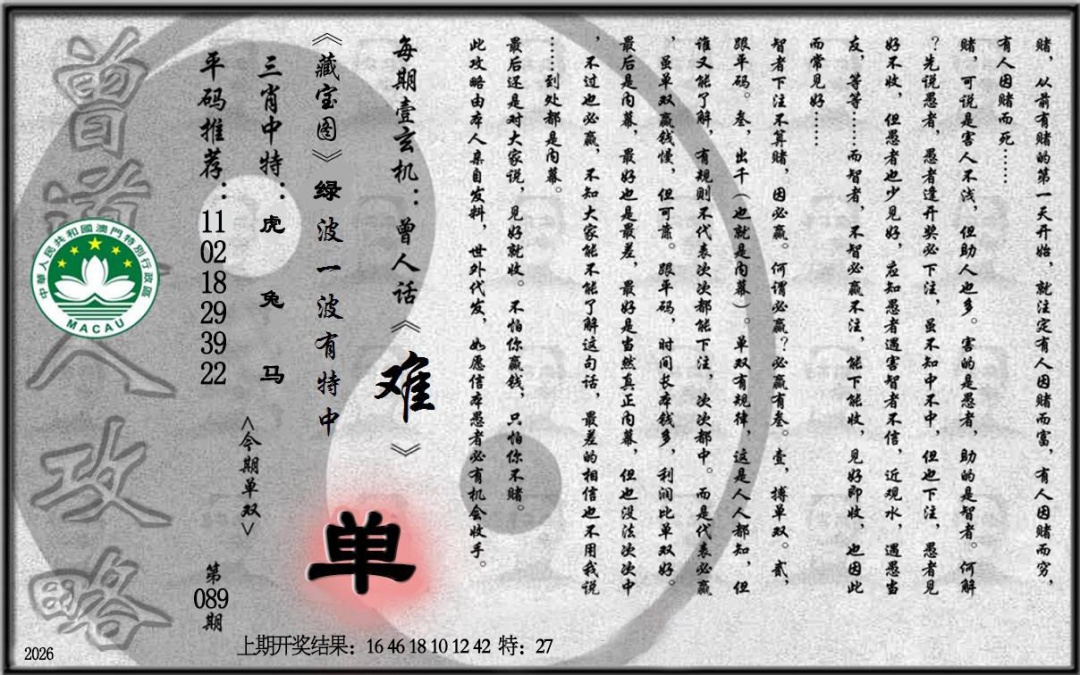 赌，从前有赌的第一天开始，就注定有人因赌而富，有人因赌而穷，
有人因赌而死……
赌，可说是害人不浅，但助人也多。害的是愚者，助的是智者。何解
？先说愚者，愚者逢开奖必下注，虽不知中不中，但也下注，愚者见
好不收，但愚者也少见好，应知愚者遇害智者不信，近观水，遇愚当
友，等等……而智者，不智必赢不注，能下能收，见好即收，也因此
而常见好……
智者下注不算赌，因必赢。何谓必赢？必赢有叁。壹，搏单双。贰，
跟平码。叁，出千（也就是内幕）。单双有规律，这是人人都知，但
谁又能了解，有规则不代表次次都能下注，次次都中。而是代表必赢
，虽单双赢钱慢，但可靠。跟平码，时间长本钱多，利润比单双好。
最后是内幕，最好也是最差，最好是当然真正内幕，但也没法次次中
，不过也必赢，不知大家能不能了解这句话，最差的相信也不用我说
……到处都是内幕。
最后还是对大家说，见好就收。不怕你赢钱，只怕你不赌。
此攻略由本人亲自发料，世外代发，如愿信本愚者必有机会收手。
每期壹玄机：曾人话《难》
《藏宝图》绿波一波有特中
单
三肖中特：虎 兔 马
<今期单双>
平码推荐：11 02 18 29 39 22
第089期
曾道人攻略
中華人民共和國澳門特別行政區
MACAU
上期开奖结果：16 46 18 10 12 42 特：27
2026